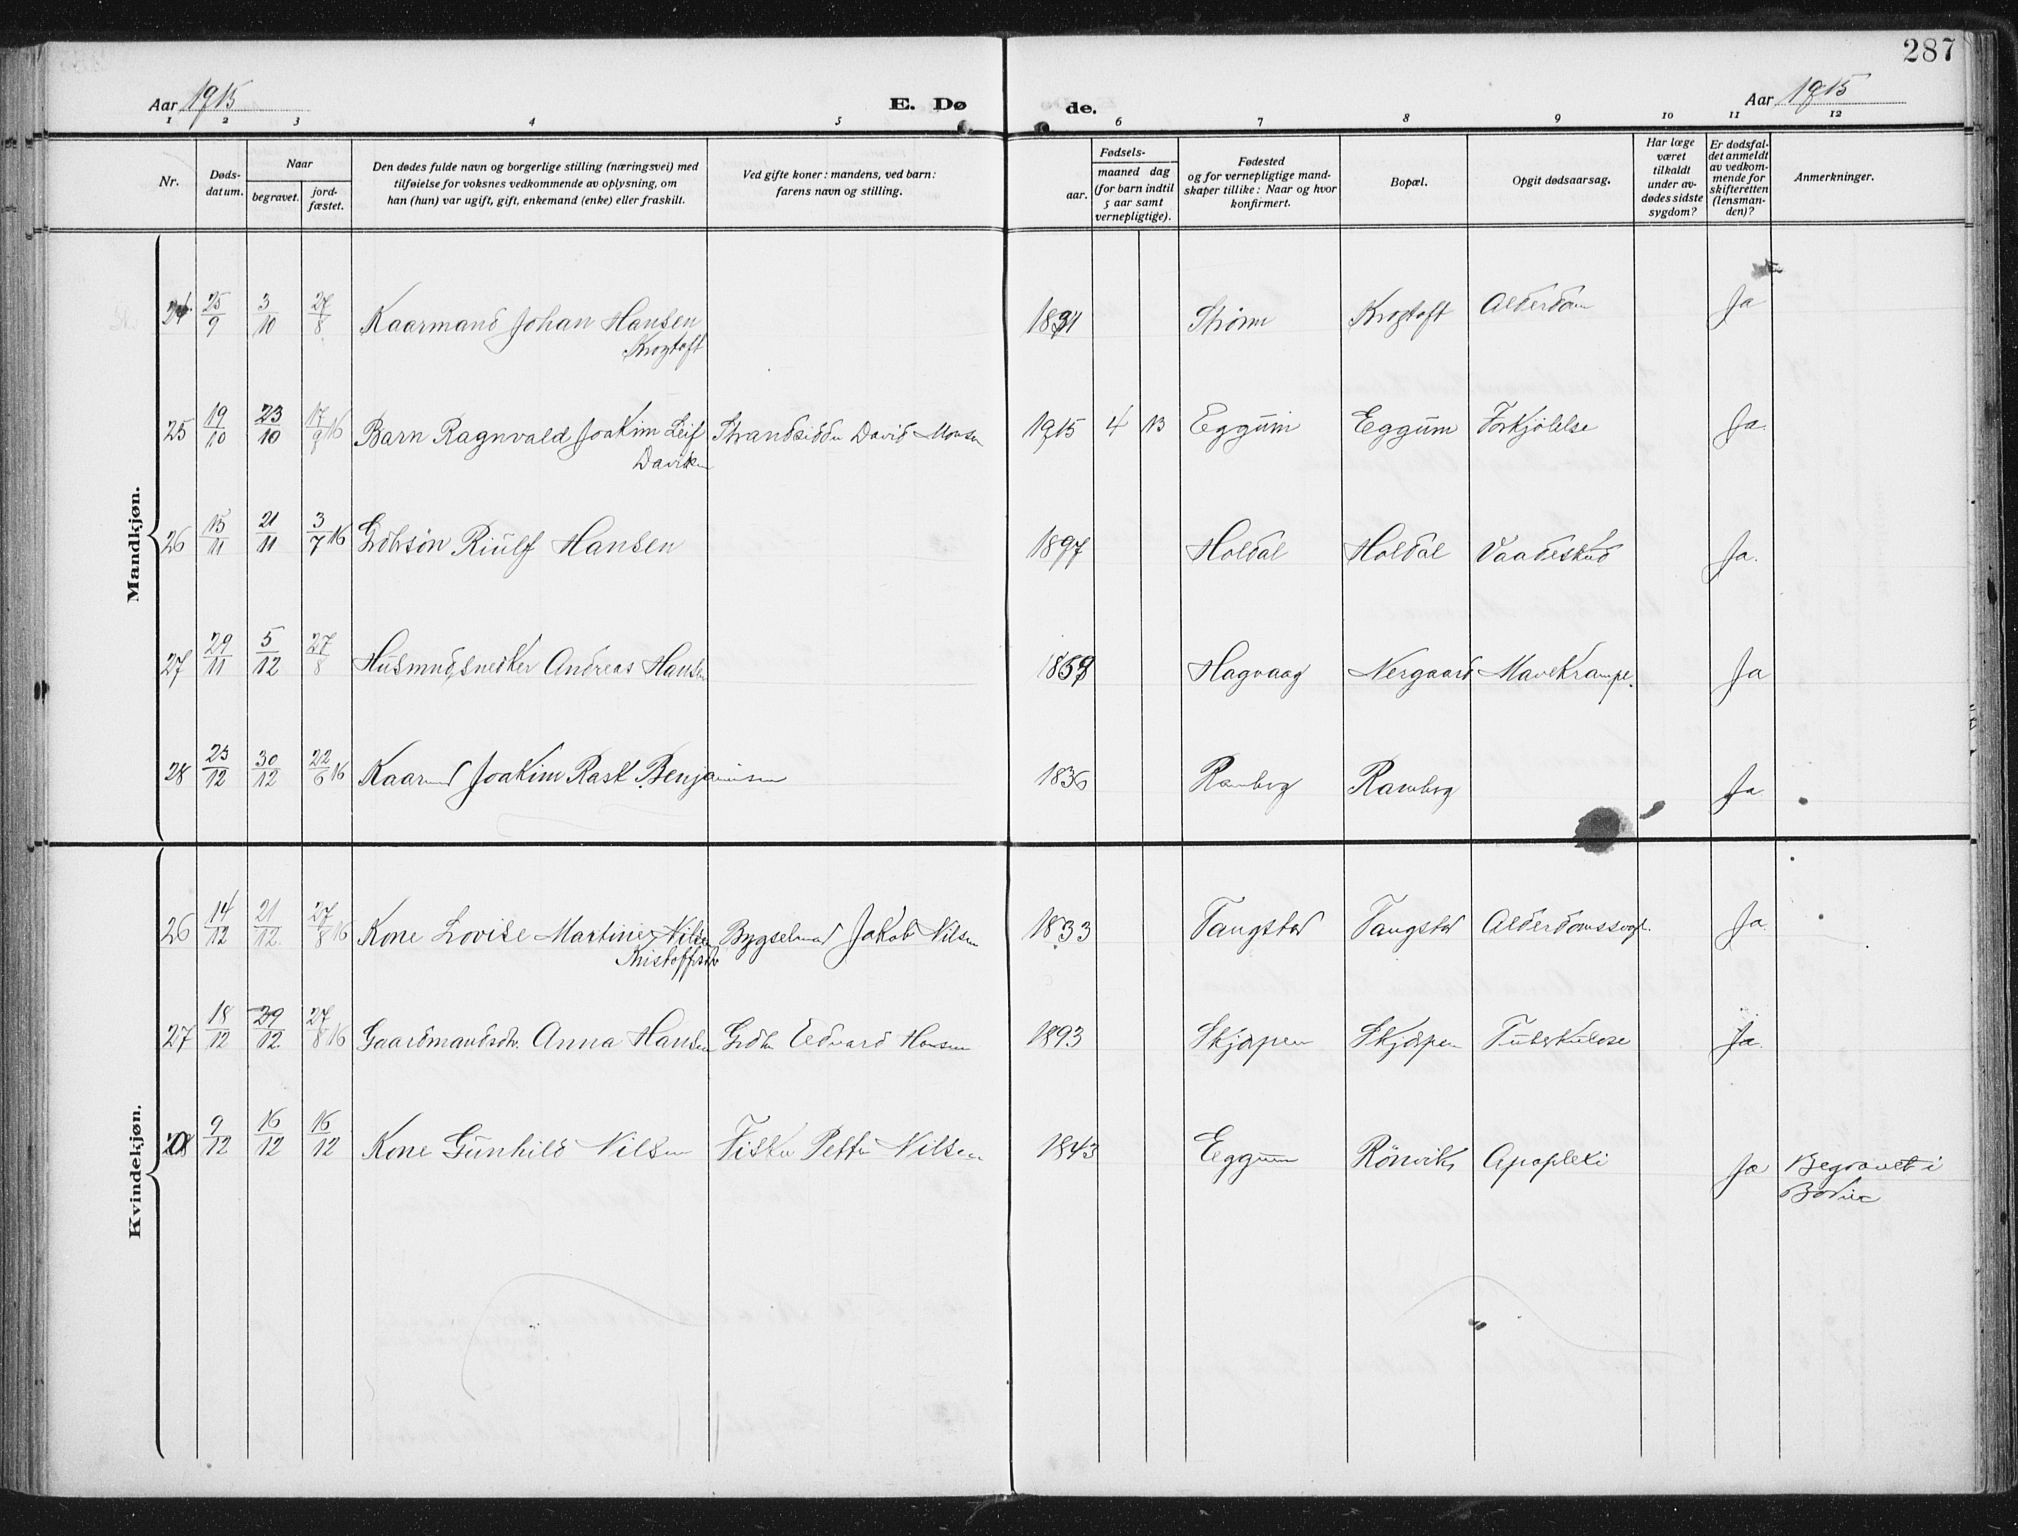 287
Aar 1915 E. Dø de. Aar 1915
1 2 3 4 5 6 7 8 9 10 11 12
Nr.
Døds-
datum.
Naar
begravet.
jord-
fæstet.
Den dødes fulde navn og borgerlige stilling (næringsvei) med
tilføielse for voksnes vedkommende av oplysning, om
han (hun) var ugift, gift, enkemand (enke) eller fraskilt.
Ved gifte koner: mandens, ved barn:
farens navn og stilling.
Fødsels-
aar.
maaned dag
(for barn indtil
5 aar samt
vernepligtige).
Fødested
og for vernepligtige mand-
skaper tillike: Naar og hvor
konfirmert.
Bopæl.
Opgit dødsaarsag.
Har læge
været
tilkaldt
under av-
dødes sidste
sygdom?
Er dødsfal-
det anmeldt
av vedkom-
mende for
skifteretten
(lensman-
den)?
Anmerkninger.
Mandkjøn.
24 25/9 3/10 27/8 Kaarmand Johan Hansen 1831 Strøm Krogtoft Alderdom Ja
Krogtoft
25 19/10 23/10 17/9 16 Barn Ragnvald Joakim Leif Strandsidder David Monsen 1915 4 13 Eggum Eggum Forkjølelse Ja.
Davidsen
26 15/11 21/11 3/7 16 Grdbrsøn Riulf Hansen 1897 Holdal Holdal Vaadeskud Ja.
27 29/11 5/12 27/8 Husmndsnedker Andreas Hansen Hagvaag Nergaard Mavekrampe. Ja
28 25/12 30/12 22/6 16 Kaarmd Joakim Rask Benjaminsen 1836 Ramberg Ramberg Ja
Kvindekjøn.
26 14/12 21/12. 27/8 16 Kone Lovise Martine Nilsen Bygselmand Jakob Nilsen 1833 Tangstad Tangstad Ja.
Kristoffersdtr
27 18/12 29/12. 27/8 16 Gaardmandsdtr. Anna Hansen Grdbr Edvard Hansen 1893 Skjærpen Skjærpen Tuberkulose Ja.
28 9/12 16/12 16/12 Kone Gunhild Nilsen Fisker Petter Nilsen 1843 Eggum Rønvik Apopleksi Ja Begravet i
Bodin